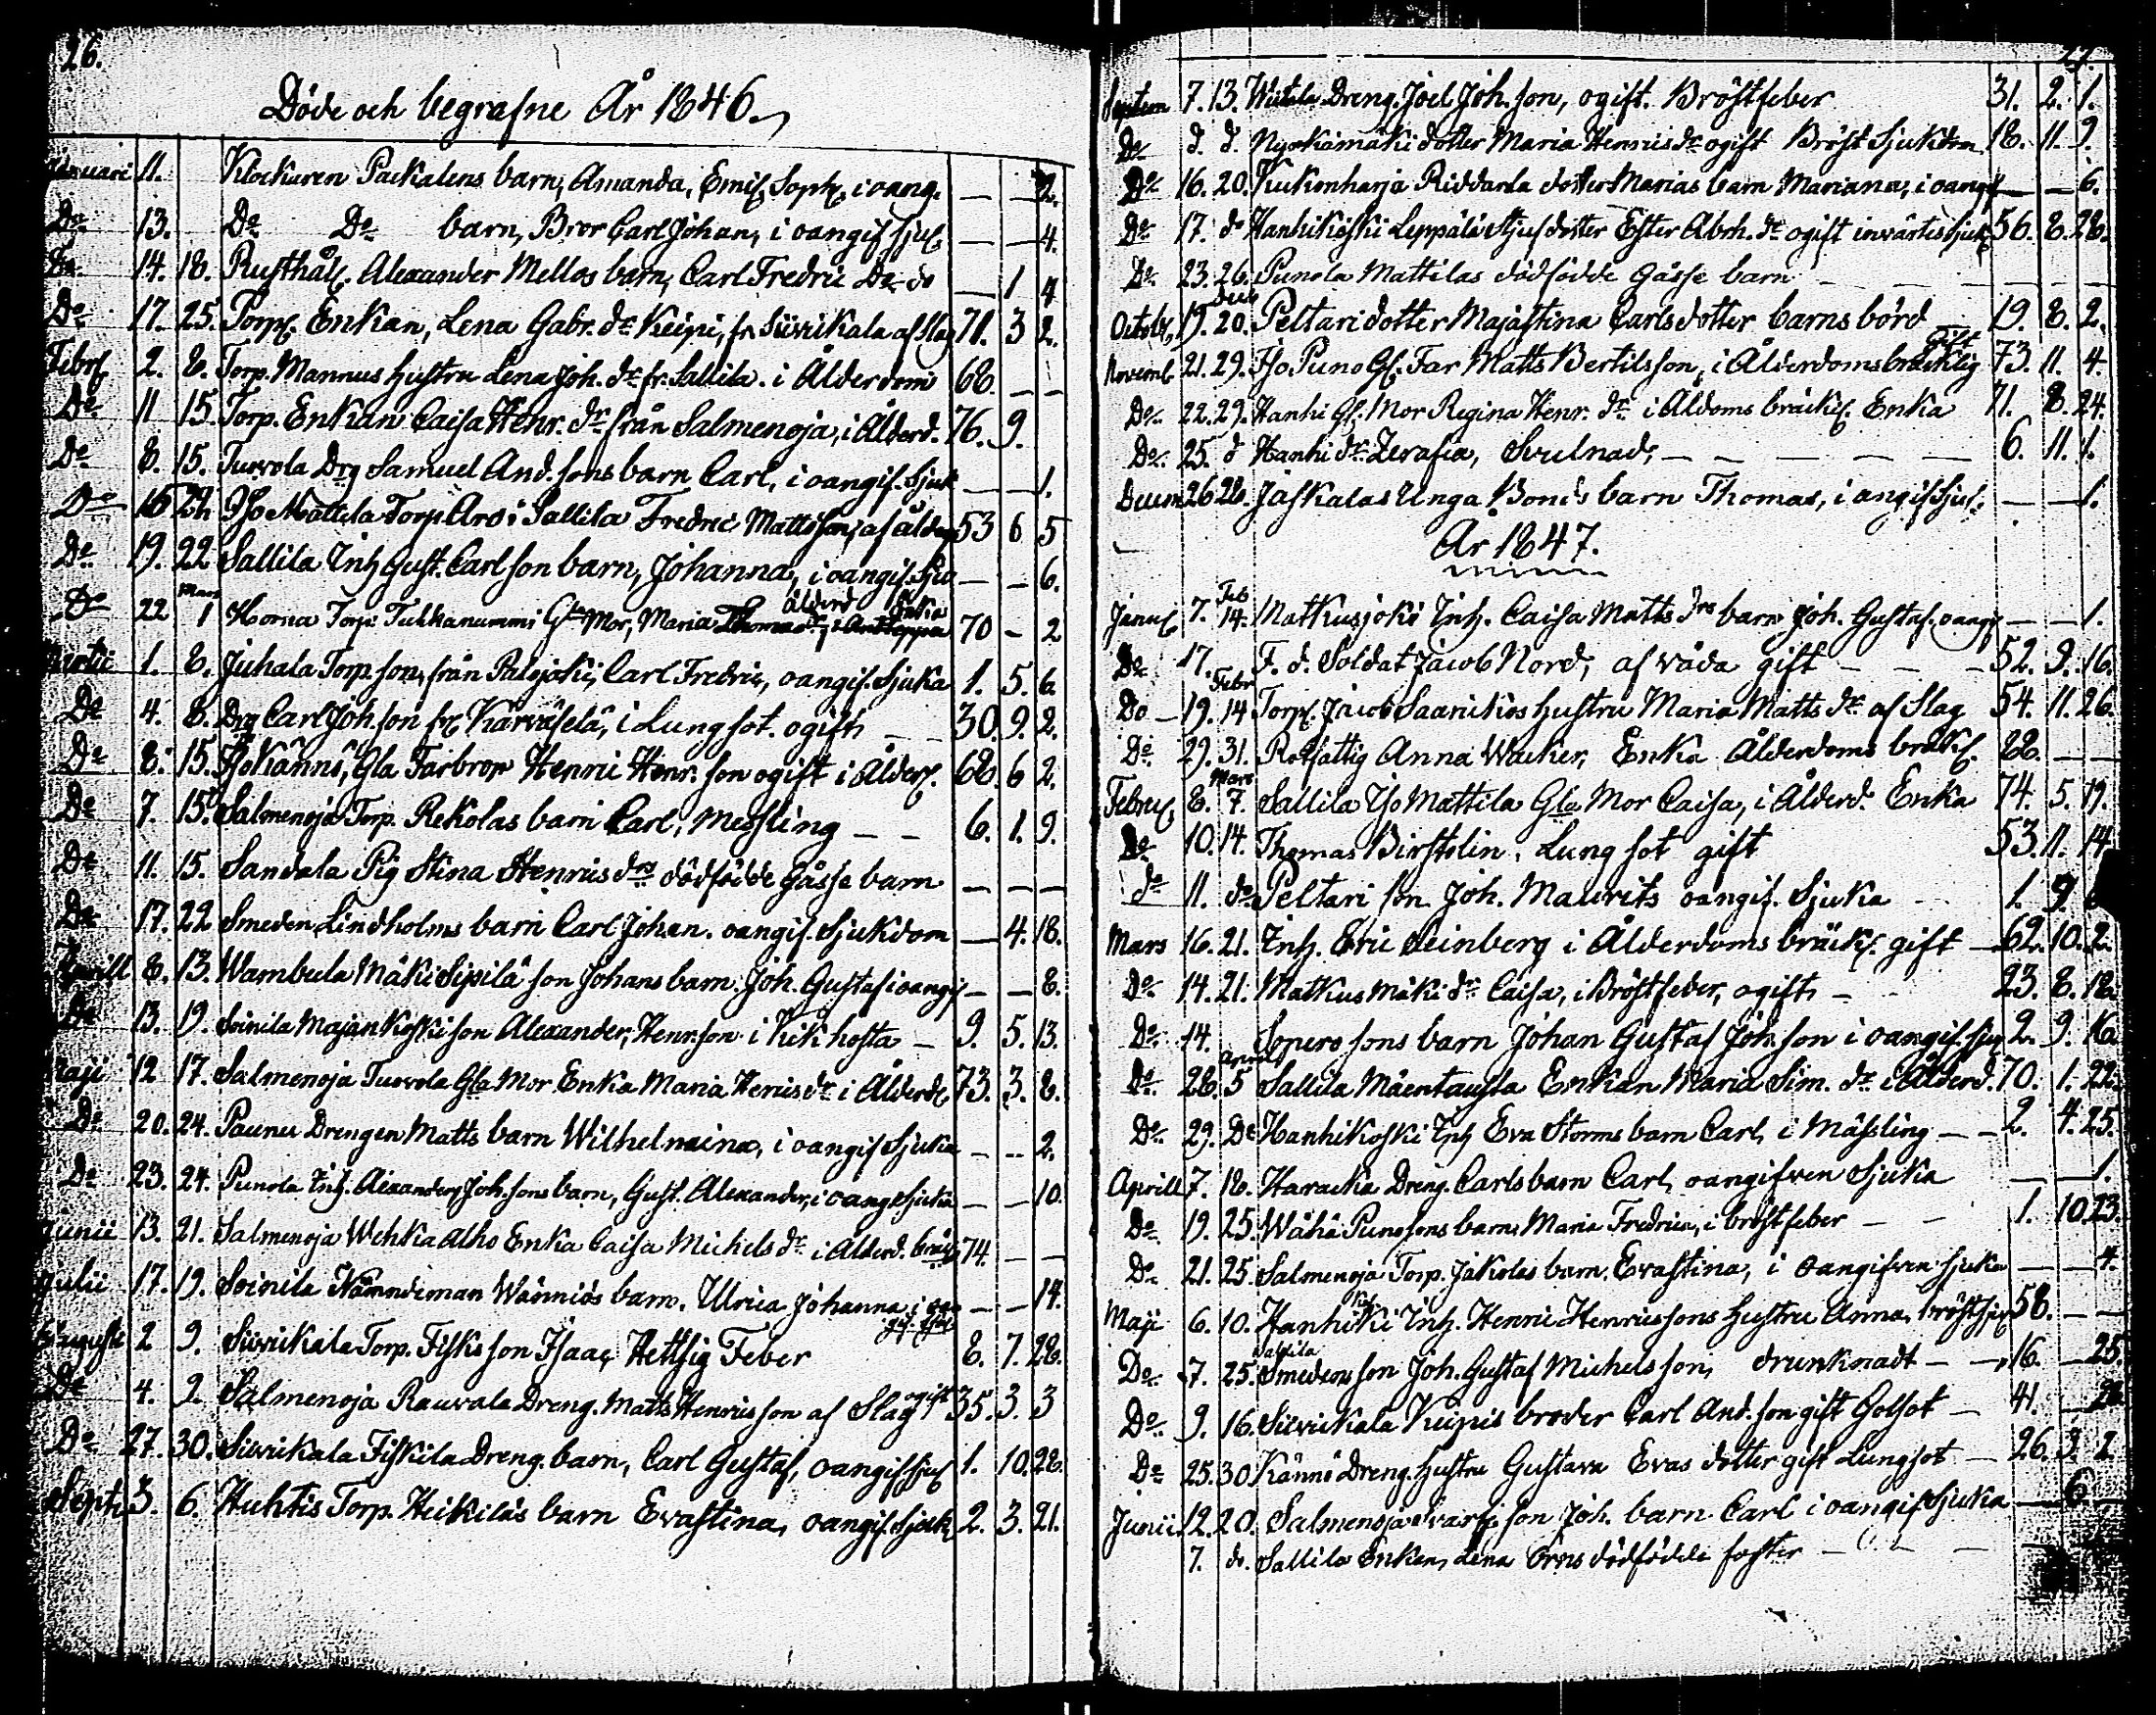 26.
Döde och begrafne År 1846.
Januari 11. Klockaren Packalens barn, Amanda, Emil. Soph. i oang. — — 2.
Do 13. Do Do barn, Bror Carl Johan, i oangif sjuk — — 4.
Do 14. 18. Rusthål. Alexander Mellos barn, Carl Fredric Do do — 1 4
Do 17. 25. Torp. Enkan, Lena Gabr. dr Keipi, fr. Siwikala af Slag 71. 3 2.
Febr 2. 8. Torp. Mannus hustru Lena Joh. dr fr. Sallila. i Ålderdom 68. — —
Do 11 15. Torp. Enkan Caisa Henr. dr från Salmenoja, i Ålderd. 76. 9.
Do 8. 15. Turvola Drg Samuel And. sons barn Carl, i oangif. Sjuk — — 1.
Do 16 22 Iso Mattila Torp Aro i Sallila Fredric Matts son, af ålder 53 6 5
Do 19. 22 Sallila Inh Gust. Carlson barn, Johanna, i oangif. Sju — — 6.
Do 22 Mars 1 Horna Torp. Tukkanummi Gla Mor, Maria Ålderd Enka 70 — 2
Martii 1. 8. Juhala Torp. son, från Palojoki, Carl Fredric, oangif. Sjuka 1. 5. 6.
Do 4. 8. Drg Carl Joh. son fr. Karvaselä, i Lungsot. ogift — — 30. 9. 2.
Do 8. 15. Iso Kännö, Gla Farbror Henric Henr. son ogift i Ålder. 68. 6 2.
Do 7. 15. Salmenoja Torp. Rekolas barn Carl, Messling — — 6. 1. 9.
Do 11. 15. Sandala Pig Stina Henrics drs dödfödde Gåsse barn — — —
Do 17. 22 Smeden Lindholms barn Carl Johan. oangif. Sjukdom — 4. 18.
Aprill 8. 13. Wambula Mäki Sipilä son Johans barn. Joh. Gustaf i oangif — — 8.
Do 13. 19. Soinila Majankoski son Alexander, Henr. son i Kikhosta — 9. 5. 13.
Maji 12 17. Salmenoja Turvola Gla Mor Enka Maria Henrics dr i Ålderd 73. 3. 8.
Do 20. 24. Paunu Drengen Matts barn Wilhelmina, i oangif Sjuka — — 2.
Do 23. 24. Punola Inh. Alexander Joh. sons barn, Gust. Alexander, i oang Sjuka — — 10.
Junii 13. 21. Salmenoja Wehka Alho Enka Caisa Michels dr i Ålderd. bräck 74. — —
Julii 17. 19. Soinila Nämndeman Wänniös barn. Ulrica Johanna i oan gif. sjuk — — 14.
Augusti 2 9. Siwikala Torp. Fisks son Isaac, Hettsig Feber 8. 7. 28.
Do 4. 9 Salmenoja Rauvala Dreng. Matts Henrics son af Slag ogift 35. 3. 3
Do 27. 30. Siwikala Fiskila Dreng. barn, Carl Gustaf, oangif sjuk 1. 10. 28.
Septe 3. 6. Huhtis Torp. Heikiläs barn Evastina, oangif. Sjuk 2. 3. 21.
Septem 7. 13. Dreng. Joel Joh. son, ogift. Bröstfeber 31. 2. 1.
Do d. d. Myrkämäki dotter Maria Henrics dr ogift Bröst Sjukdom 18. 11. 9.
Do 16. 20. Kukonharja Riddarla dotter Marias barn Mariana, i oangif — — 6.
Do 17. do Hanhikoski Leppälä Stjuf dotter Ester Abrh. dr ogift inwärtes sjuk 56. 8. 28.
Do 23. 26. Punola Mattilas dödfödde Gåsse barn — — —
Octobr. 19. 20. Peltari dotter Majastina Carls dotter barns börd 19. 8. 2.
Novemb. 21. 29. Iso Puno Gl. Far Matts Bertilsson, i Ålderdoms bräcklig Gift 73. 11. 4.
Do 22. 29. Hanhi Gl. Mor Regina Henr. dr i Åldoms bräckl. Enka 71. 8. 24.
Do 25. d Hanhi dr Zerafia, Svulnad, — — — — 6. 11. 1.
Decem 26 28. Jaskalas Unga Bonds barn Thomas, i angif sjuk. — — 1.
År 1847.
Janu 7. Feb 14. Matkusjoki Inh. Caisa Matts drs barn Joh. Gustaf. oangif — — 1.
Do 17. F. d. Soldat Jacob Nord, af våda gift — — — 52. 9. 16.
Do — 19. Febr 14 Torp. Jacob Saarikkos hustru Maria Matts dr af Slag 54. 11. 26.
Do 29. 31. Rotfattig Anna Wacker, Enka Ålderdoms bräckl. 88. — —
Febru 8. Mars 7. Sallila Iso Mattila Gla Mor Caisa, i Ålderd. Enka 74. 5. 19.
Do 10. 14. Thomas Birstolin. Lungsot gift 53. 11. 14
do 11. do Peltari son Joh. Maurits oangif. Sjuka 1. 9.
Mars 16. 21. Inh. Eric Seinberg i Ålderdoms bräckl. gift — 62. 10. 2.
Do 14. 21. Matkus mäki dr Caisa, i Bröstfeber, ogift — 23. 8. 18.
Do 14. Sopers sons barn Johan Gustaf Joh. son i oangif. sju 2. 9. 16
Do 28. April 5 Sallila Mäentausta Enkan Maria Sim. dr i Ålderd. 70. 1. 22.
Do 29. Do Hanhikoski Inh Eva Storms barn Carl, i Mässling — — 2. 4. 25.
Aprill 7. 18. Haracka Dreng. Carls barn Carl, oangifven Sjuka — — 1.
Do 19. 25. Wähä Puno sons barn Maria Fredrica, i bröstfeber — — 1. 10. 23.
Do 21. 25. Salmenoja Torp. Jakolas barn. Evastina, i oangifven sjuka — — 4.
Maji 6. 10. Hanhikoski Inh. Henric Henricssons hustru Anna, bröstsju 58. — —
Do 7. 25. Sallila Smedens son Joh. Gustaf Michelsson, drunknadt — — 16. — 25.
Do 9. 16. Siwikala Keipis broder Carl And. son gift Golsot — 41. — 26
Do 25. 30 Kännö Dreng. hustru Gustava Evas dotter gift Lungsot — 26. 3. 2
Junii 12. 20. Salmenoja son Joh. barn Carl i oangif Sjuka — 6. —
7. do. Sallila Enkan, Lena Orns dödfödde foster — — —